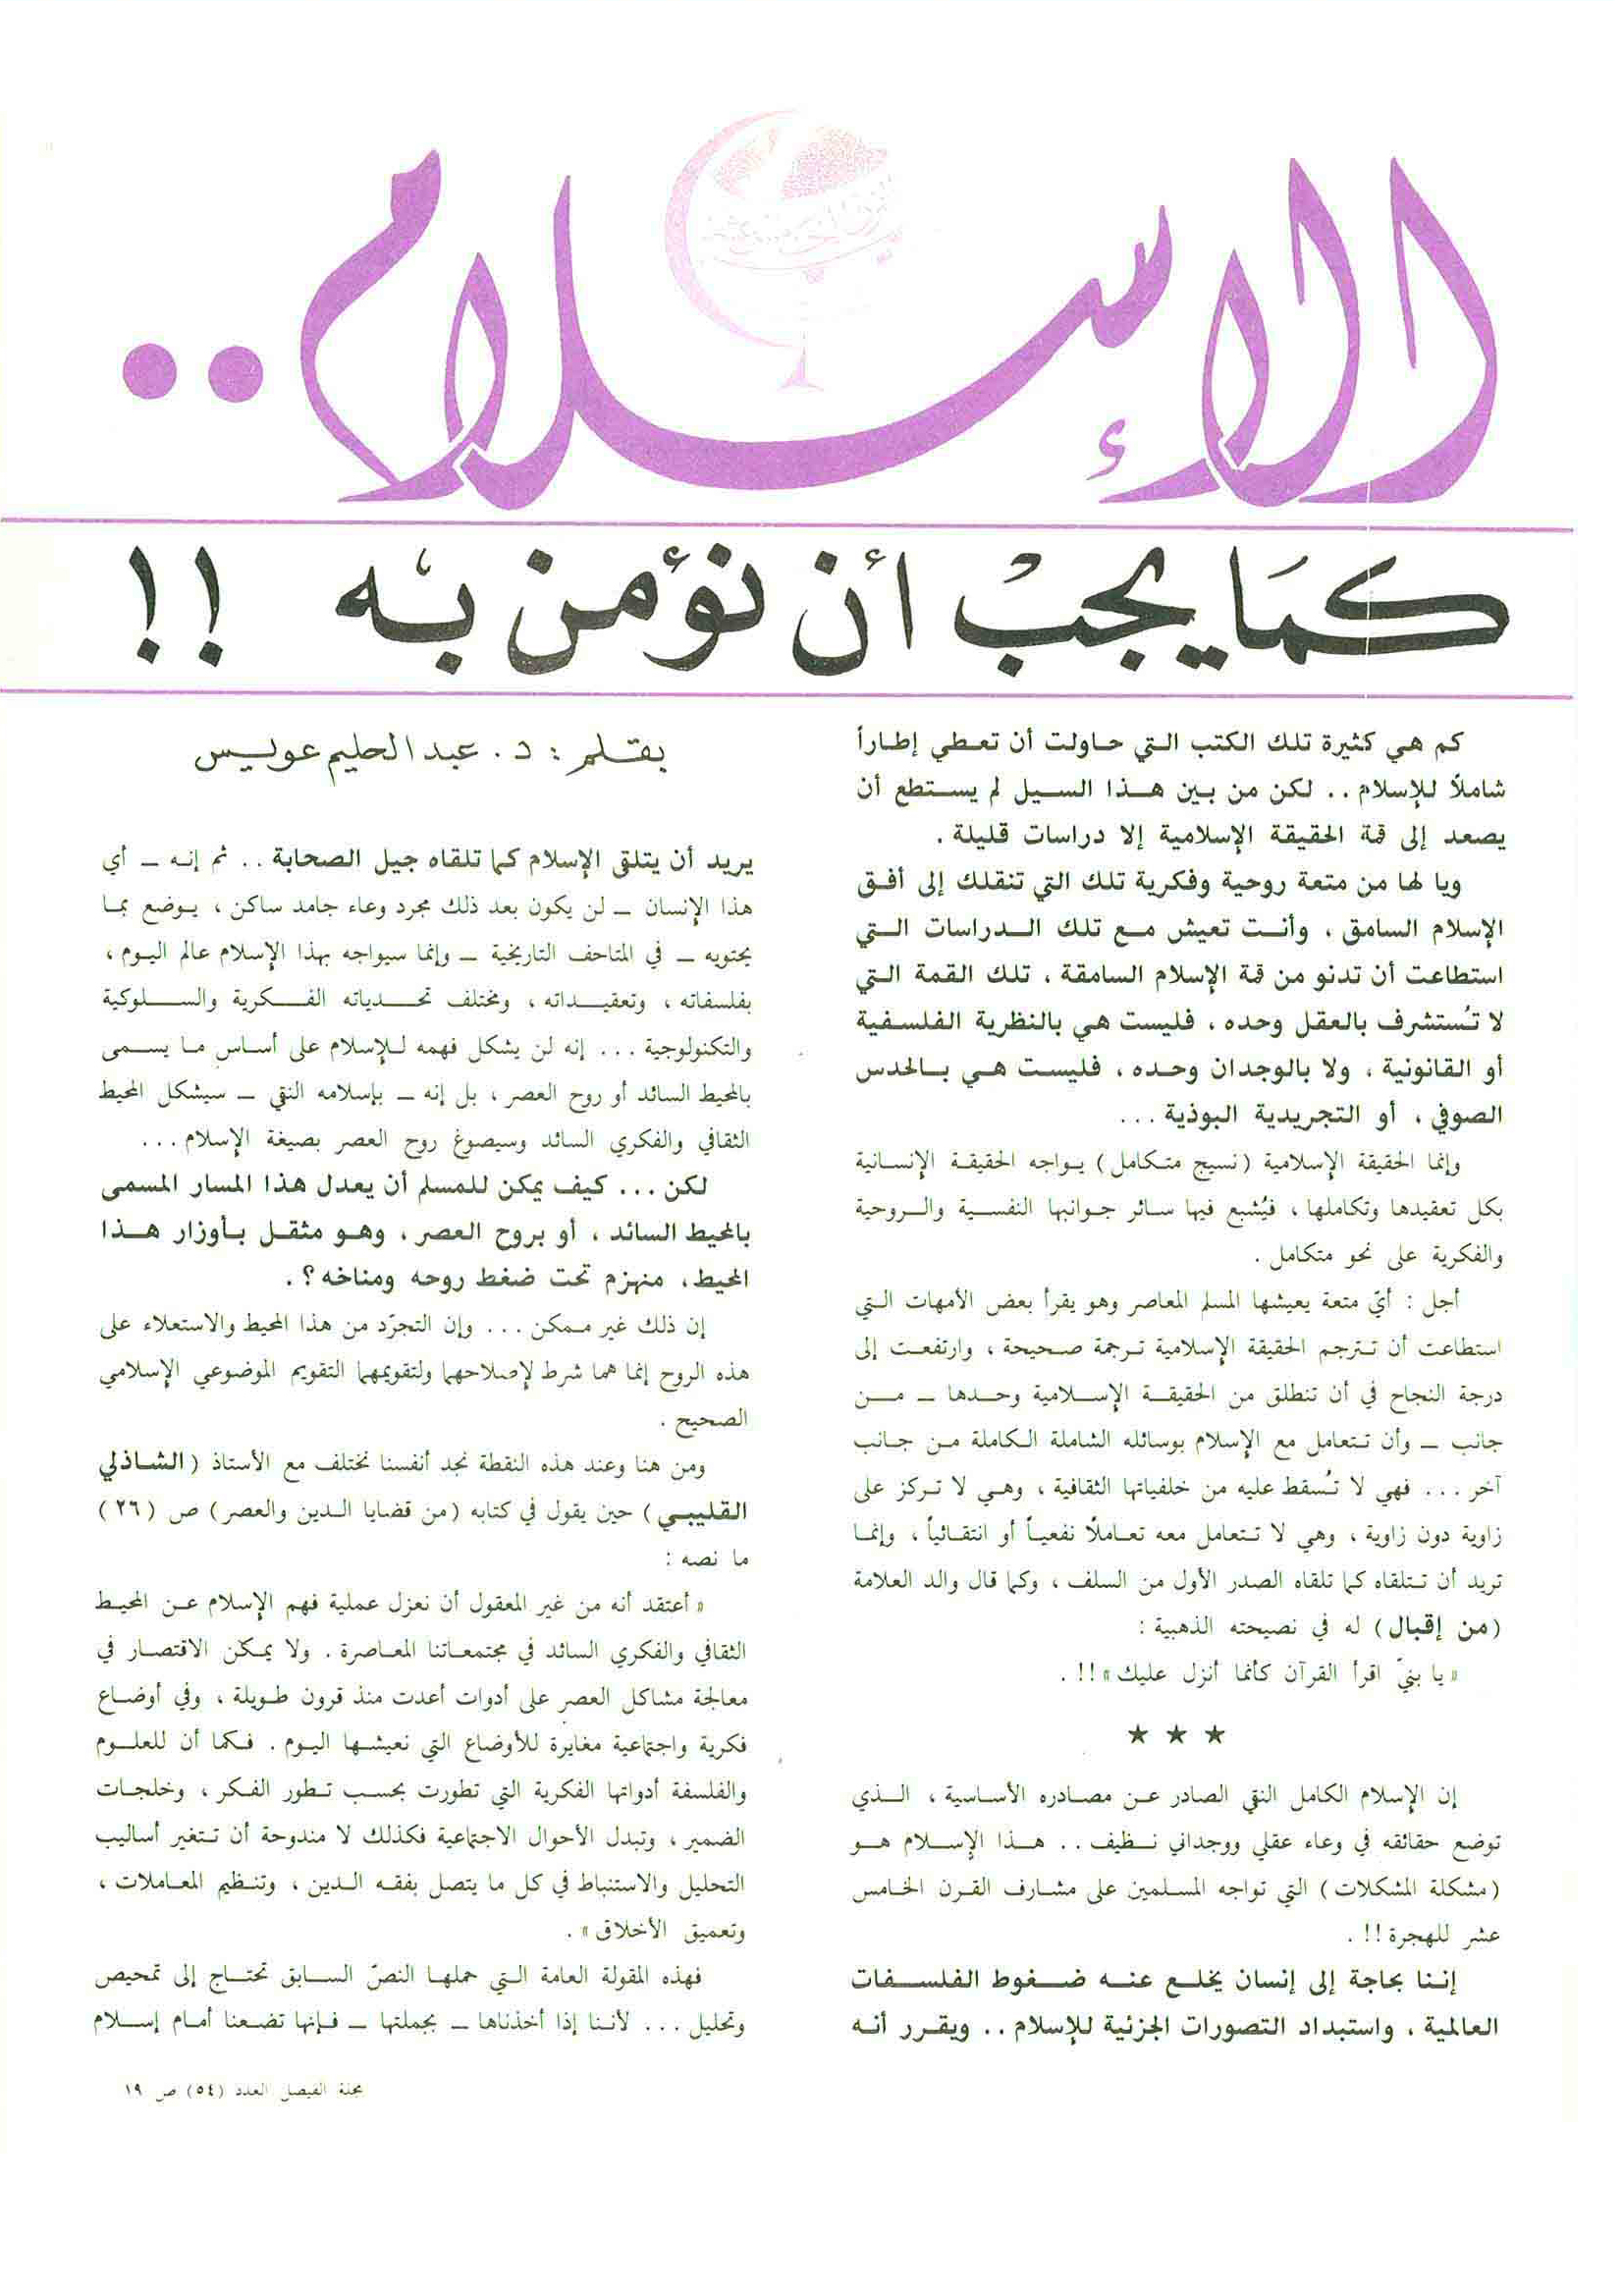 الإسلام..
كما يجب أن نؤمن به !!
بقلم : د. عبد الحليم عويس
كم هي كثيرة تلك الكتب التي حاولت أن تعطي إطاراً
شاملاً للإسلام .. لكن من بين هذا السيل لم يستطع أن
يصعد إلى قمة الحقيقة الإسلامية إلا دراسات قليلة .
ويا لها من متعة روحية وفكرية تلك التي تنقلك إلى أفق
الإسلام السامق ، وأنت تعيش مع تلك الدراسات التي
استطاعت أن تدنو من قمة الإسلام السامقة ، تلك القمة التي
لا تُستشرف بالعقل وحده ، فليست هي بالنظرية الفلسفية
أو القانونية ، ولا بالوجدان وحده ، فليست هي بالحدس
الصوفي ، أو التجريدية البوذية ...
وإنما الحقيقة الإسلامية (نسيج متكامل) يواجه الحقيقة الإنسانية
بكل تعقيدها وتكاملها ، فيُشبع فيها سائر جوانبها النفسية والروحية
والفكرية على نحو متكامل .
أجل : أيّ متعة يعيشها المسلم المعاصر وهو يقرأ بعض الأمهات التي
استطاعت أن تترجم الحقيقة الإسلامية ترجمة صحيحة ، وارتفعت إلى
درجة النجاح في أن تنطلق من الحقيقة الإسلامية وحدها – من
جانب – وأن تتعامل مع الإسلام بوسائله الشاملة الكاملة من جانب
آخر ... فهي لا تُسقط عليه من خلفياتها الثقافية ، وهي لا تركز على
زاوية دون زاوية ، وهي لا تتعامل معه تعاملاً نفعياً أو انتقائياً ، وإنما
تريد أن تتلقاه كما تلقاه الصدر الأول من السلف ، وكما قال والد العلامة
(من إقبال) له في نصيحته الذهبية :
« يا بنيّ اقرأ القرآن كأنما أنزل عليك » !! .
★ ★ ★
إن الإسلام الكامل النقي الصادر عن مصادره الأساسية ، الذي
توضع حقائقه في وعاء عقلي ووجداني نظيف .. هذا الإسلام هو
(مشكلة المشكلات) التي تواجه المسلمين على مشارف القرن الخامس
عشر للهجرة !! .
إننا بحاجة إلى إنسان يخلع عنه ضغوط الفلسفات
العالمية ، واستبداد التصورات الجزئية للإسلام .. ويقرر أنه
يريد أن يتلقى الإسلام كما تلقاه جيل الصحابة .. ثم إنه – أي
هذا الإنسان – لن يكون بعد ذلك مجرد وعاء جامد ساكن ، يوضع بما
يحتويه – في المتاحف التاريخية – وإنما سيواجه بهذا الإسلام عالم اليوم ،
بفلسفاته ، وتعقيداته ، ومختلف تحدياته الفكرية والسلوكية
والتكنولوجية ... إنه لن يشكل فهمه للإسلام على أساس ما يسمى
بالمحيط السائد أو روح العصر ، بل إنه – بإسلامه النقي – سيشكل المحيط
الثقافي والفكري السائد وسيصوغ روح العصر بصيغة الإسلام ...
لكن ... كيف يمكن للمسلم أن يعدل هذا المسار المسمى
بالمحيط السائد ، أو بروح العصر ، وهو مثقل بأوزار هذا
المحيط ، منهزم تحت ضغط روحه ومناخه ؟ .
إن ذلك غير ممكن ... وإن التجرّد من هذا المحيط والاستعلاء على
هذه الروح إنما هما شرط لإصلاحهما ولتقويمهما التقويم الموضوعي الإسلامي
الصحيح .
ومن هنا وعند هذه النقطة نجد أنفسنا نختلف مع الأستاذ (الشاذلي
القليبي) حين يقول في كتابه (من قضايا الدين والعصر) ص (٢٦)
ما نصه :
« أعتقد أنه من غير المعقول أن نعزل عملية فهم الإسلام عن المحيط
الثقافي والفكري السائد في مجتمعاتنا المعاصرة . ولا يمكن الاقتصار في
معالجة مشاكل العصر على أدوات أعدت منذ قرون طويلة ، وفي أوضاع
فكرية واجتماعية مغايرة للأوضاع التي نعيشها اليوم . فكما أن للعلوم
والفلسفة أدواتها الفكرية التي تطورت بحسب تطور الفكر ، وخلجات
الضمير ، وتبدل الأحوال الاجتماعية فكذلك لا مندوحة أن تتغير أساليب
التحليل والاستنباط في كل ما يتصل بفقه الدين ، وتنظيم المعاملات ،
وتعميق الأخلاق » .
فهذه المقولة العامة التي حملها النصّ السابق تحتاج إلى تمحيص
وتحليل ... لأننا إذا أخذناها – بجملتها – فإنها تضعنا أمام إسلام
مجلة الفيصل العدد (٥٤) ص ١٩